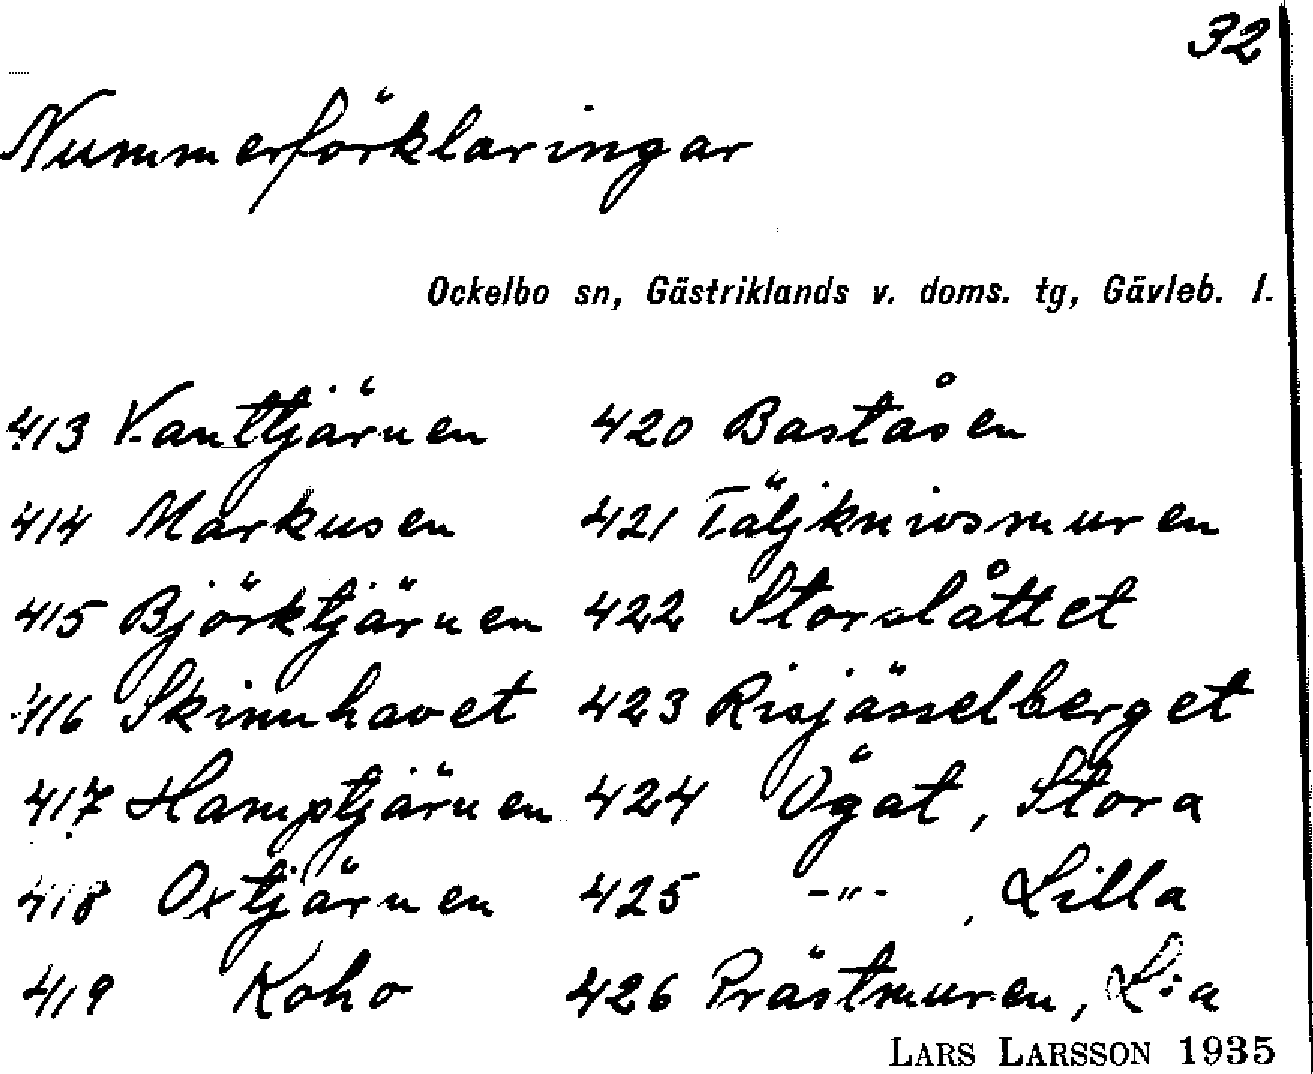 32
Nummerförklaringar
Ockelbo sn, Gästriklands v. doms. tg, Gävleb. l.
413 Vanttjärnen 420 Baståsen
414 Markusen 421 Täljknivsmuren
415 Björktjärnen 422 Storslåttet
416 Skinnhavet 423 Risjässelberget
417 Hamptjärnen 424 Ögat, Stora
418 Oxtjärnen 425 -"- , Lilla
419 Koho 426 Prästmuren, L:a
LARS LARSSON 1935